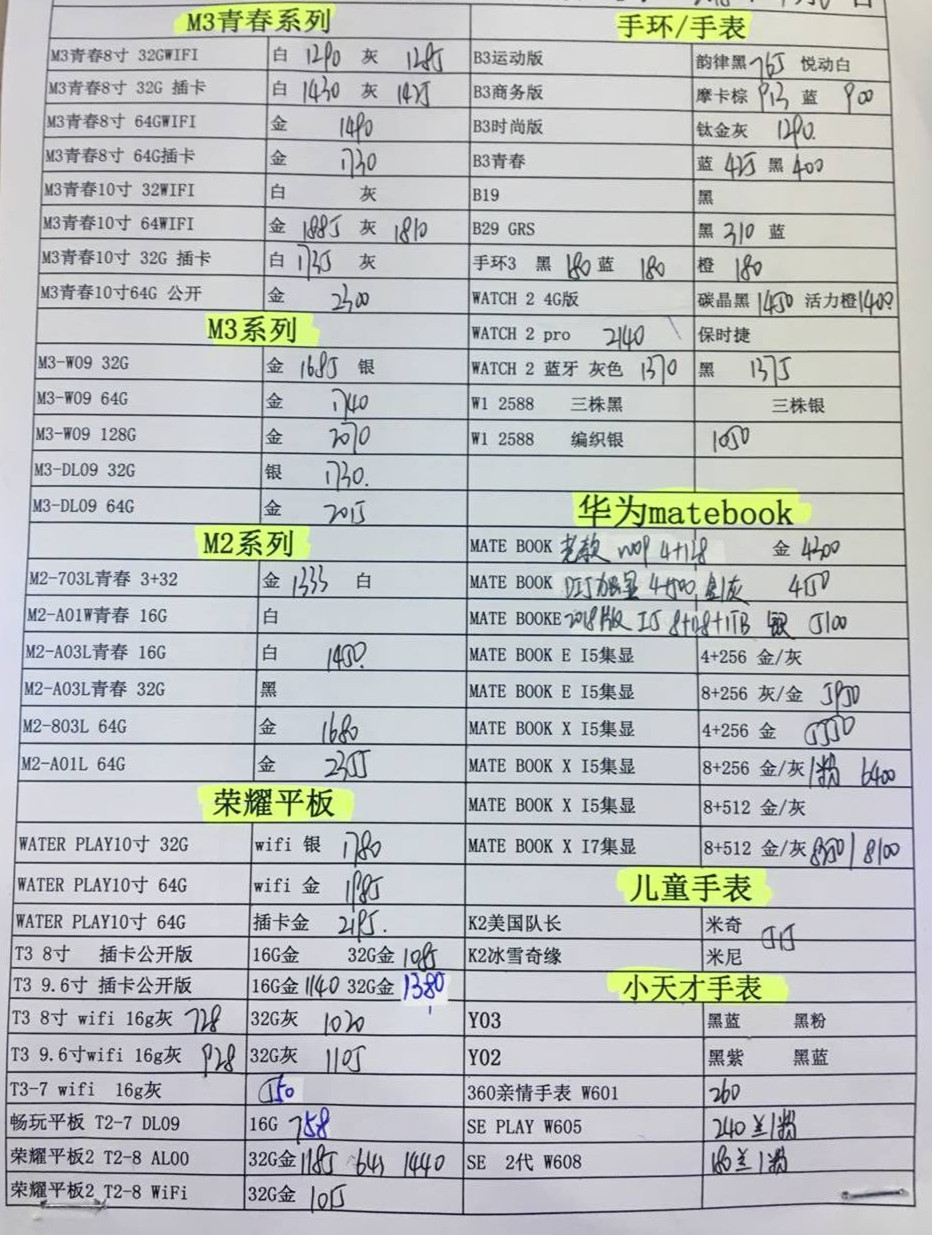 M3青春系列
M3青春8寸 32GWIFI 白 1290 灰 1285
M3青春8寸 32G 插卡 白 1430 灰 1425
M3青春8寸 64GWIFI 金 1490
M3青春8寸 64G插卡 金 1730
M3青春10寸 32WIFI 白 灰
M3青春10寸 64WIFI 金 1885 灰 1810
M3青春10寸 32G 插卡 白 1735 灰
M3青春10寸64G 公开 金 2300
M3系列
M3-W09 32G 金 1685 银
M3-W09 64G 金 1740
M3-W09 128G 金 2070
M3-DL09 32G 银 1730.
M3-DL09 64G 金 2015
M2系列
M2-703L青春 3+32 金 1333 白
M2-A01W青春 16G 白
M2-A03L青春 16G 白 1450
M2-A03L青春 32G 黑
M2-803L 64G 金 1680
M2-A01L 64G 金 2355
荣耀平板
WATER PLAY10寸 32G wifi 银 1780
WATER PLAY10寸 64G wifi 金 1985
WATER PLAY10寸 64G 插卡金 2195.
T3 8寸 插卡公开版 16G金 32G金 1085
T3 9.6寸 插卡公开版 16G金 1140 32G金 1380
T3 8寸 wifi 16g灰 728 32G灰 1020
T3 9.6寸wifi 16g灰 928 32G灰 1105
T3-7 wifi 16g灰 550
畅玩平板 T2-7 DL09 16G 758
荣耀平板2 T2-8 AL00 32G金 1185 64G 1440
荣耀平板2 T2-8 WiFi 32G金 1055
手环/手表
B3运动版 韵律黑 765 悦动白
B3商务版 摩卡棕 913 蓝 900
B3时尚版 钛金灰 1290.
B3青春 蓝 425 黑 400
B19 黑
B29 GRS 黑 310 蓝
手环3 黑 180 蓝 180 橙 180
WATCH 2 4G版 碳晶黑 1450 活力橙 1400
WATCH 2 pro 2140 保时捷
WATCH 2 蓝牙 灰色 1370 黑 1375
W1 2588 三株黑 三株银
W1 2588 编织银 1050
华为matebook
MATE BOOK 老款 4+128 金 4300
MATE BOOK 4+500 金/灰 450
MATE BOOKE 2018版 I5 8+128+1TB 银 5100
MATE BOOK E I5集显 4+256 金/灰
MATE BOOK E I5集显 8+256 灰/金 5950
MATE BOOK X I5集显 4+256 金 5550
MATE BOOK X I5集显 8+256 金/灰/粉 6400
MATE BOOK X I5集显 8+512 金/灰
MATE BOOK X I7集显 8+512 金/灰 / 8100
儿童手表
K2美国队长 米奇 515
K2冰雪奇缘 米尼
小天才手表
Y03 黑蓝 黑粉
Y02 黑紫 黑蓝
360亲情手表 W601 260
SE PLAY W605 240 兰/粉
SE 2代 W608 180 兰/粉